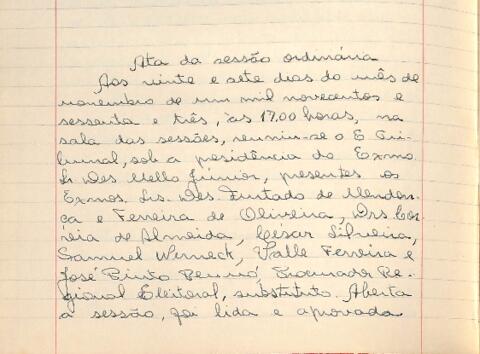 Ata da sessão ordinária
Aos vinte e sete dias do mês de
novembro de um mil novecentos e
sessenta e três, às 17.00 horas, na
sala das sessões, reuniu-se o E. Tri-
bunal, sob a presidência do Exmo.
Sr. Des. Mello Júnior, presentes os
Exmos. Srs. Des. Furtado de Mendon-
ça e Ferreira de Oliveira, Drs. Cor-
rêia de Almeida, César Silveira,
Samuel Werneck, Valle Ferreira e
José Pinto Renó, Procurador Re-
gional Eleitoral, substituto. Aberta
a sessão, foi lida e aprovada